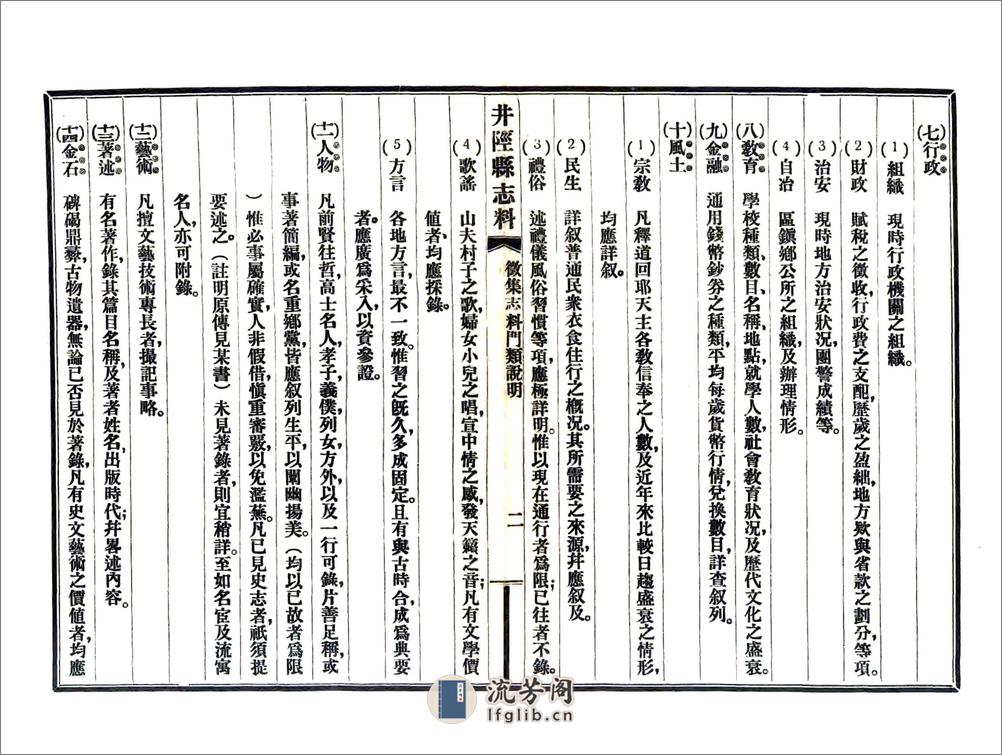 (七)行政
(1)組織　現時行政機關之組織。
(2)財政　賦稅之徵收行政費之支配歷歲之盈絀地方欵與省款之劃分,等項。
(3)治安　現時地方治安狀况團警成績等。
(4)自治　區鎭鄉公所之組織,及辦理情形。
(八)敎育　學校種類、數目、名稱、地點,就學人數,社會敎育狀况,及歷代文化之盛衰。
(九)金融　通用錢幣鈔券之種類,平均每歲貨幣行情,兌換數目,詳查叙列。
(十)風土
(1)宗敎　凡釋道回耶天主各敎信奉之人數,及近年來比較日趨盛衰之情形,
均應詳叙。
(2)民生　詳叙普通民衆衣食住行之槪况。其所需要之來源,幷應叙及。
(3)禮俗　述禮儀風俗習慣等項,應極詳明。惟以現在通行者爲限;已往者不錄。
(4)歌謠　山夫村子之歌,婦女小兒之唱,宣中情之感,發天籟之音;凡有文學價
値者,均應採錄。
(5)方言　各地方言,最不一致。惟習之旣久,多成固定。且有與古時合,成爲典要
者。應廣爲采入,以資參證。
(十一)人物　凡前賢往哲,高士名人,孝子義僕,列女方外,以及一行可錄,片善足稱,或
事著簡編,或名重鄉黨,皆應叙列生平,以闡幽揚美。(均以已故者爲限
)惟必事屬確實,人非假借,愼重審覈,以免濫蕪。凡已見史志者,祇須提
要述之。(註明原傳見某書)未見著錄者,則宜稍詳。至如名宦及流寓
名人,亦可附錄。
(十二)藝術　凡擅文藝技術專長者,撮記事略。
(十三)著述　有名著作,錄其篇目名稱,及著者姓名,出版時代;幷畧述內容。
(十四)金石　碑碣鼎彝,古物遺器,無論已否見於著錄,凡有史文藝術之價値者,均應
井陘縣志料
徵集志料門類說明
二
流芳阁
lfglib.cn